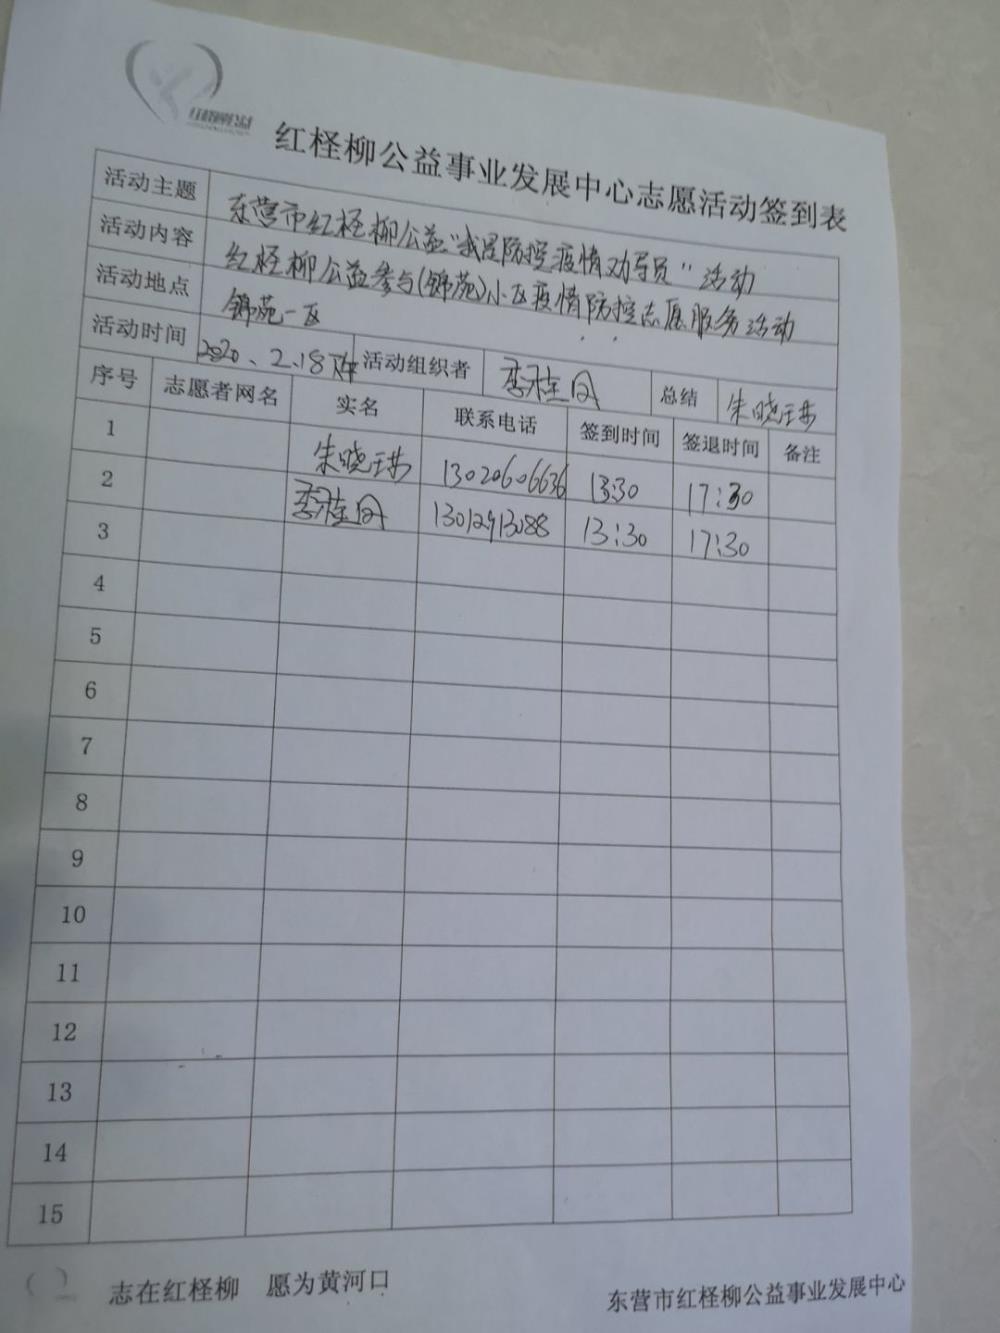 红柽柳公益
红柽柳公益事业发展中心志愿活动签到表
活动主题 东营市红柽柳公益“我是防控疫情劝导员”活动
活动内容 红柽柳公益参与(锦苑)小区疫情防控志愿服务活动
活动地点 锦苑一区
活动时间 2020、2.18下午 活动组织者 李桂凤 总结 朱晓玨
序号 志愿者网名 实名 联系电话 签到时间 签退时间 备注
1 13020606636 13:30 17:30
2 李桂凤 13012913088 13:30 17:30
3
4
5
6
7
8
9
10
11
12
13
14
15
志在红柽柳 愿为黄河口
东营市红柽柳公益事业发展中心